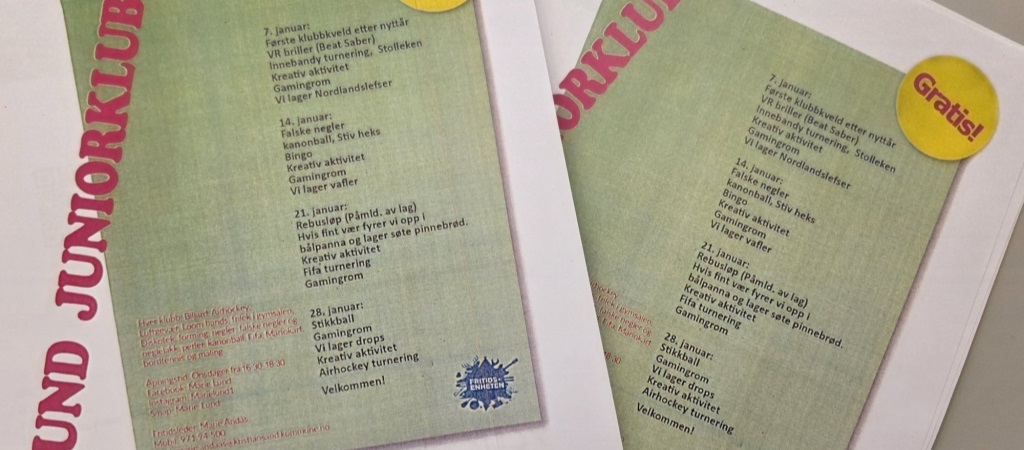 UND JUNIORKLUB
7. januar:
Første klubbkveld etter nyttår
VR briller (Beat Saber)
Innebandy turnering, Stolleken
Kreativ aktivitet
Gamingrom
Vi lager Nordlandslefser
14. januar:
Falske negler
kanonball, Stiv heks
Bingo
Kreativ aktivitet
Gamingrom
Vi lager vafler
21. januar:
Rebusløp (Påmld. av lag)
Hvis fint vær fyrer vi opp i
bålpanna og lager søte pinnebrød.
Kreativ aktivitet
Fifa turnering
Gamingrom
28. januar:
Stikkball
Gamingrom
Vi lager drops
Kreativ aktivitet
Airhockey turnering
Velkommen!
Hver klubb: Biljart, Airhockey,
Åpningstid: Onsdager fra 16.30-18.30
Facebook: Marie Lund
Snap: Marie Lund
FRITIDS-
ENHETEN
ORKLU
Gratis!
7. januar:
Første klubbkveld etter nyttår
VR briller (Beat Saber)
Innebandy turnering, Stolleken
Kreativ aktivitet
Gamingrom
Vi lager Nordlandslefser
14. januar:
Falske negler
kanonball, Stiv heks
Bingo
Kreativ aktivitet
Gamingrom
Vi lager vafler
21. januar:
Rebusløp (Påmld. av lag)
Hvis fint vær fyrer vi opp i
bålpanna og lager søte pinnebrød.
Kreativ aktivitet
Fifa turnering
Gamingrom
28. januar:
Stikkball
Gamingrom
Vi lager drops
Kreativ aktivitet
Airhockey turnering
Velkommen!